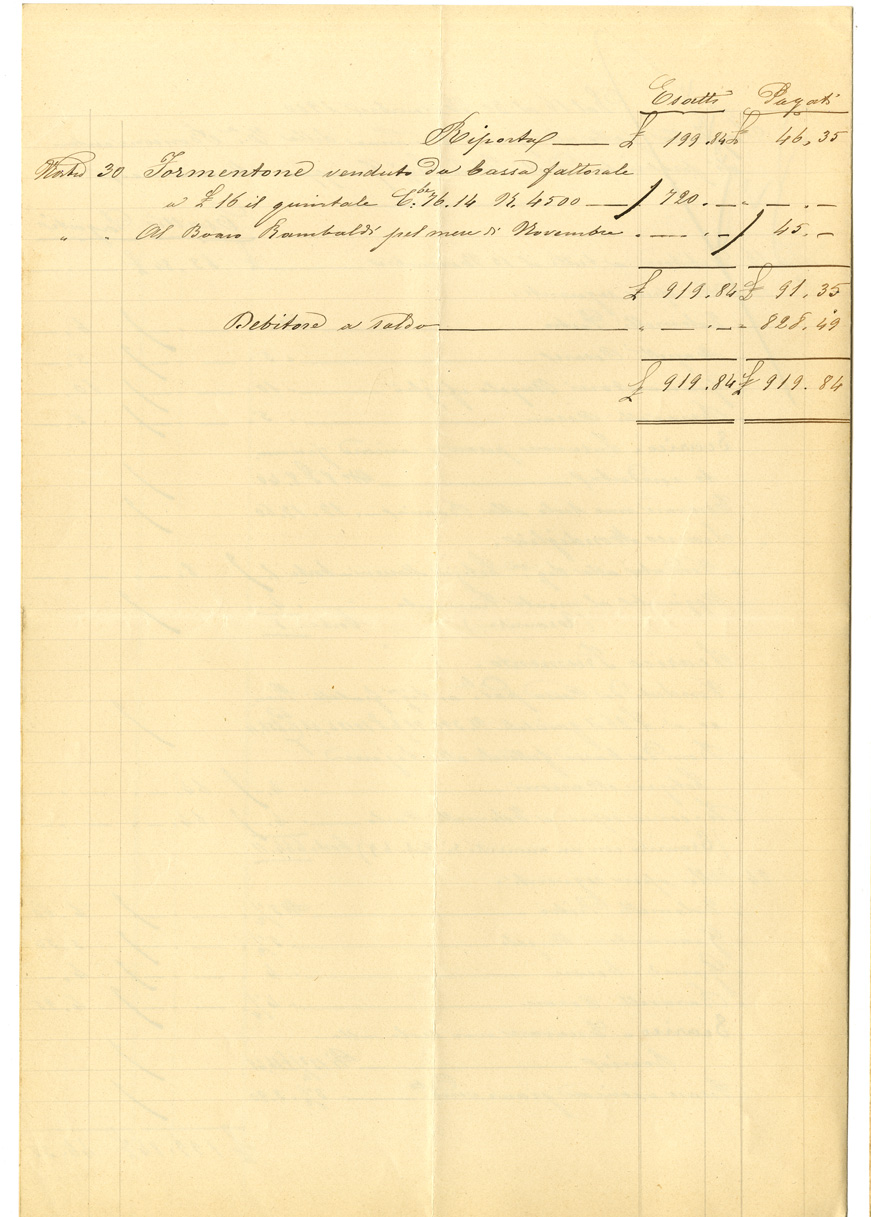 Esatti Pagati
Riporto £ 199.84 £ 46.35
30 Formentone venduto da Cassa fattorale
a £ 16 il quintale C: 76.14 K. 4500 — 720. — " — . —
" " Al Boaro Rambaldi pel mese di Novembre " — . — 45. —
£ 919.84 £ 91.35
Debitore a saldo " — . — " 828.49
£ 919.84 £ 919.84